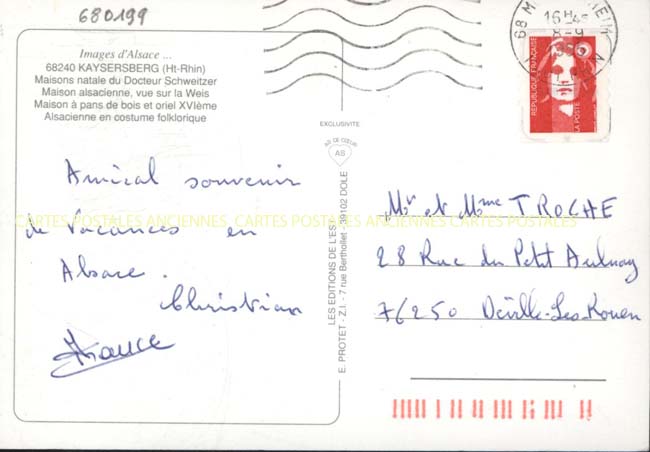 680199
Images d'Alsace ...
68240 KAYSERSBERG (Ht-Rhin)
Maisons natale du Docteur Schweitzer
Maison alsacienne, vue sur la Weis
Maison à pans de bois et oriel XVIème
Alsacienne en costume folklorique
Amical souvenir
de Vacances en
Alsace.
Christian
France
EXCLUSIVITE
AS DE CŒUR
AS
LES EDITIONS DE L'EST
E. PROTET - Z.I. - 7 rue Berthollet - 39102 DOLE
68
16 H 45
REPUBLIQUE FRANÇAISE
LA POSTE
Mr et Mme TROCHE
28 Rue du Petit Aulnay
76250 Déville-Les-Rouen
CARTES POSTALES ANCIENNES, CARTES POSTALES ANCIENNES CARTES POSTALES ANCIENNES